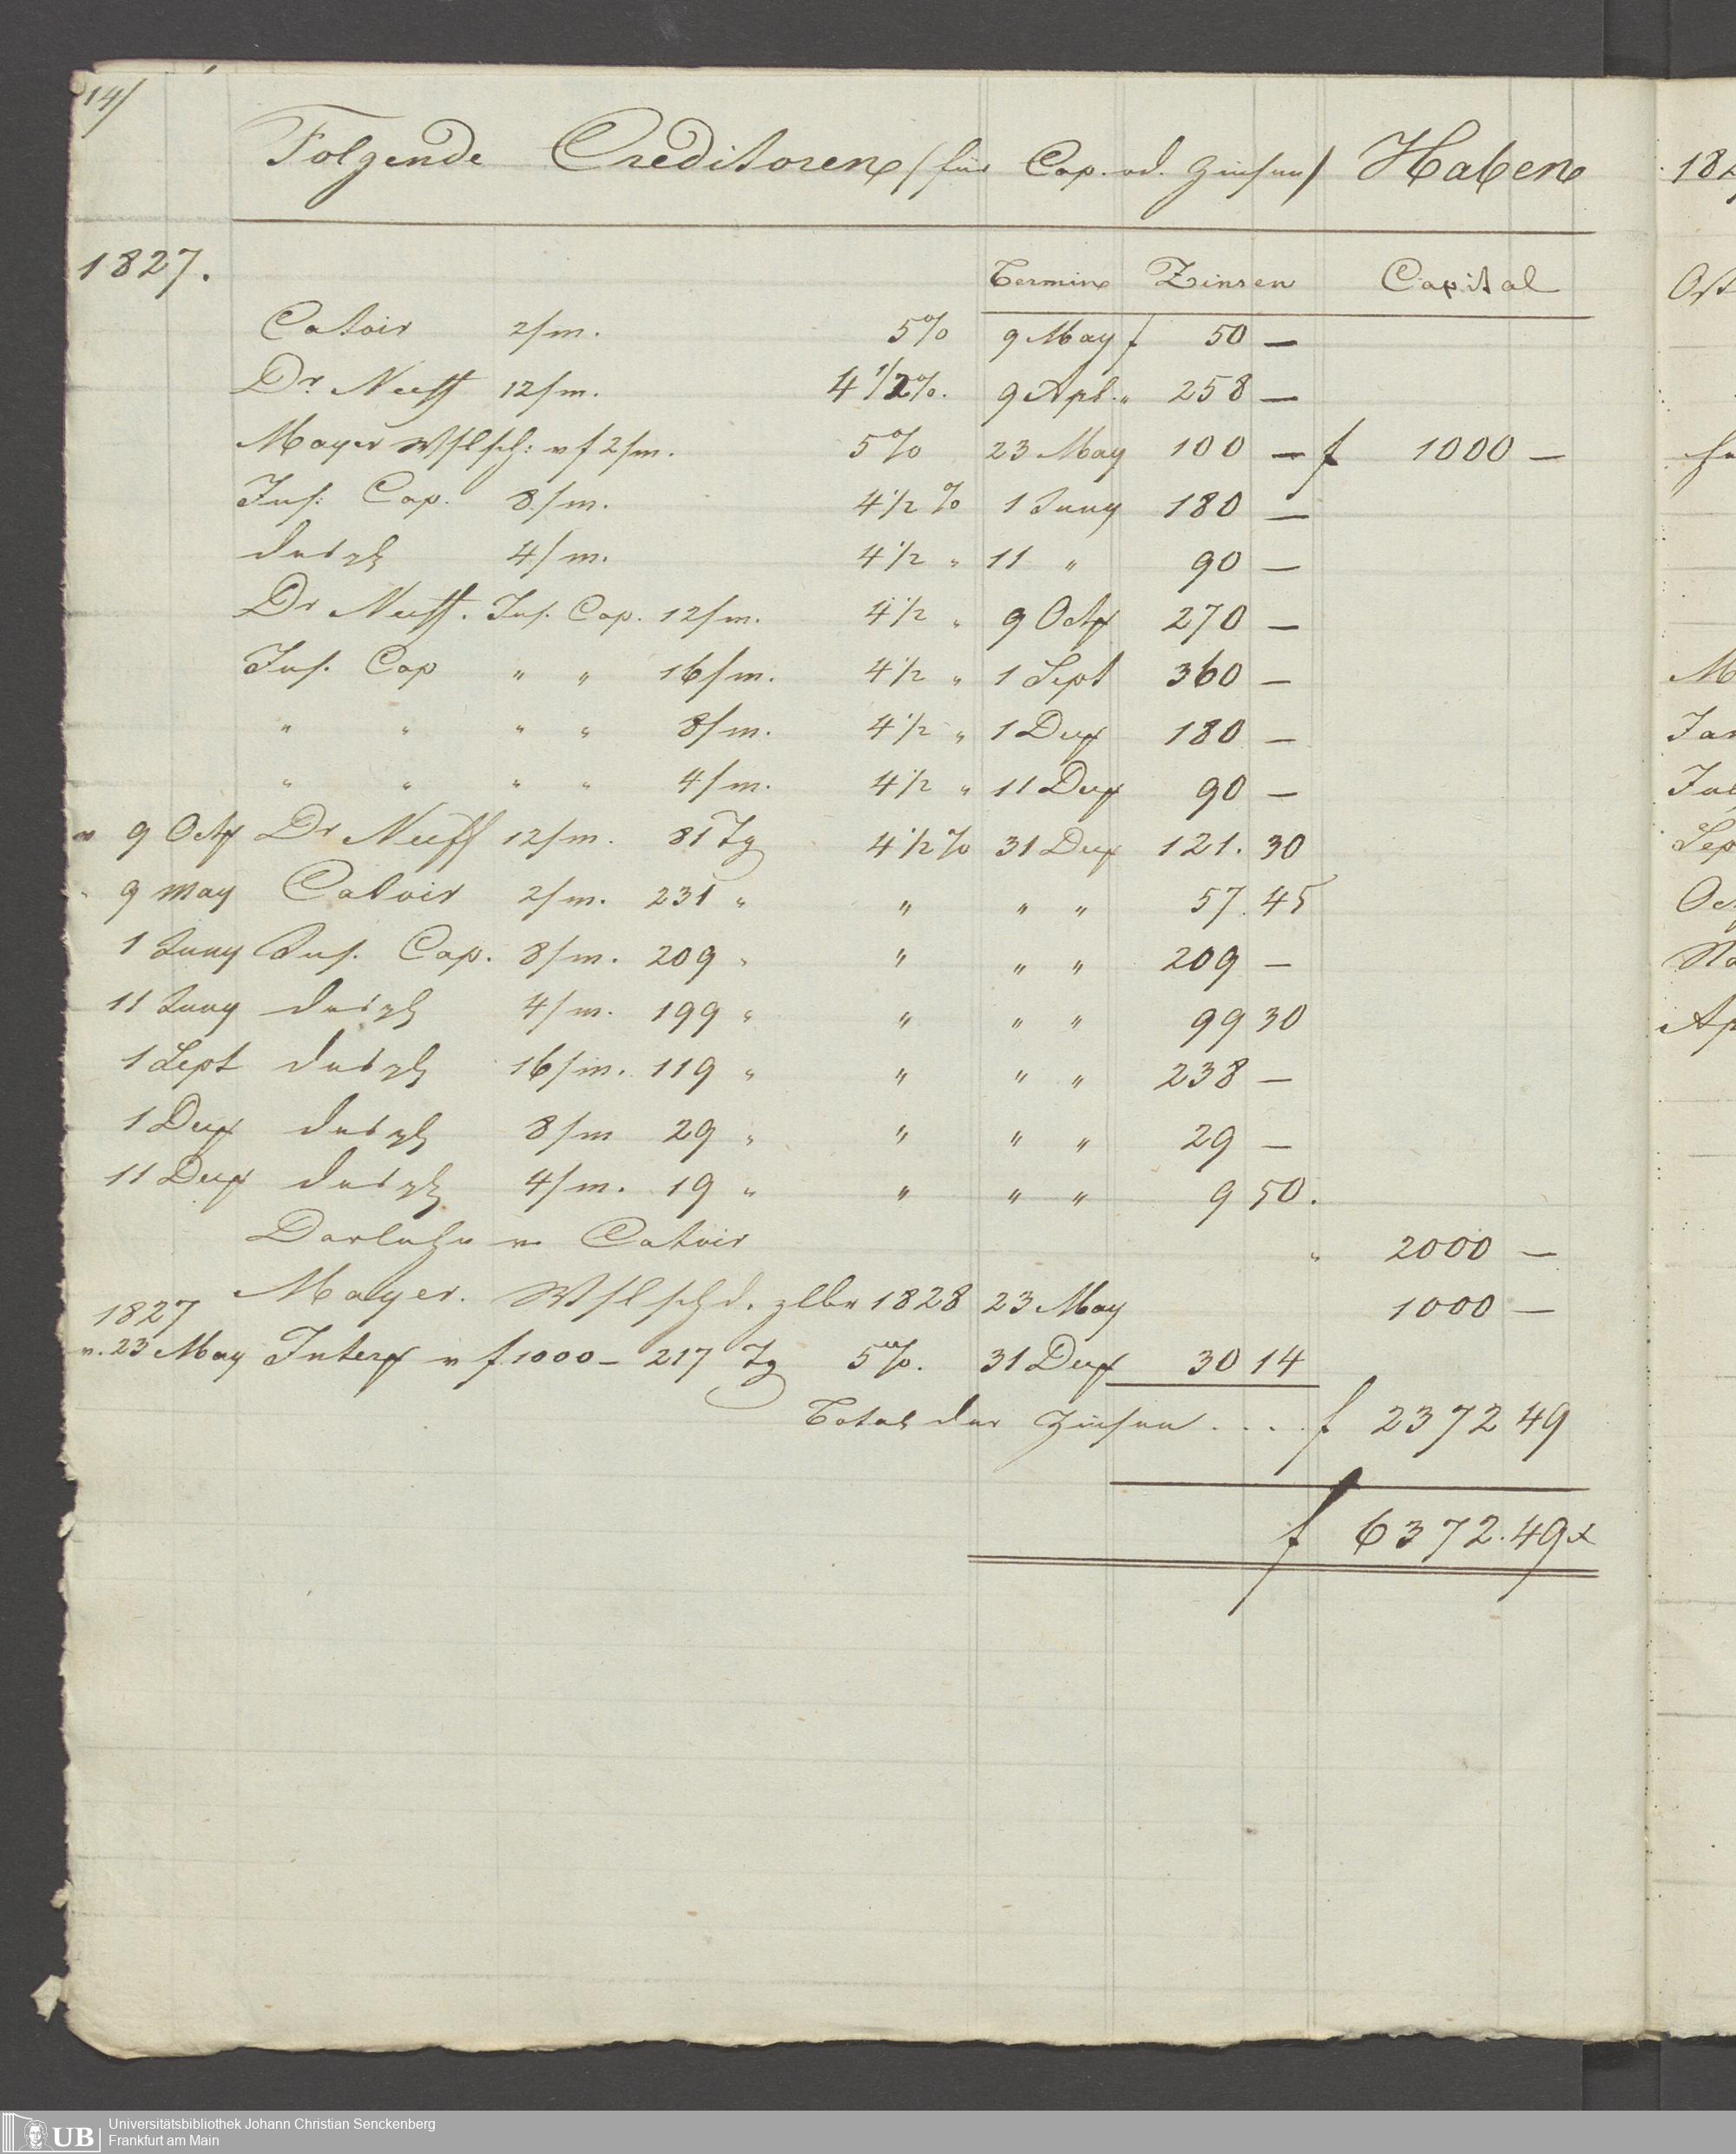 14/
Folgende Creditoren (für Cap. od. Zinsen) Haben
1827.
Termine Zinsen Capital
Catoir 2/m. 5% 9 May f 50 —
Dr Neuff 12/m. 4 1/2%. 9 Apl. " 258 —
Mayer Wslsch: v f 2/m. 5% 23 May 100 — f 1000 —
Ins: Cap. 8/m. 4 1/2 % 1 Juny 180 —
desgl 4/m. 4 1/2 " 11 " 90 —
Dr Neuff. Ins. Cap. 12/m. 4 1/2 " 9 Octr 270 —
Ins. Cap " " 16/m. 4 1/2 " 1 Sept 360 —
" " " " 8/m. 4 1/2 " 1 Decr 180 —
" " " " 4/m. 4 1/2 " 11 Decr 90 —
v 9 Octr Dr Neuff 12/m. 81 Tg 4 1/2% 31 Decr 121. 30
" 9 May Catoir 2/m. 231 " " " " 57. 45
1 Juny Ins. Cap. 8/m. 209 " " " " 209 —
11 Juny desgl 4/m. 199 " " " " 99 30
1 Sept desgl 16/m. 119 " " " " 238 —
1 Decr desgl 8/m 29 " " " " 29 —
11 Decr desgl 4/m. 19 " " " " 9 50.
Darlehn v Catoir " 2000 —
Mayer. Wslschd. zlbr 1828 23 May 1000 —
1827
v. 23 May Interr v f 1000 – 217 Tg 5%. 31 Decr 30 14
Total der Zinsen .... f 2372 49
f 6372. 49x
Universitätsbibliothek Johann Christian Senckenberg
Frankfurt am Main
UB